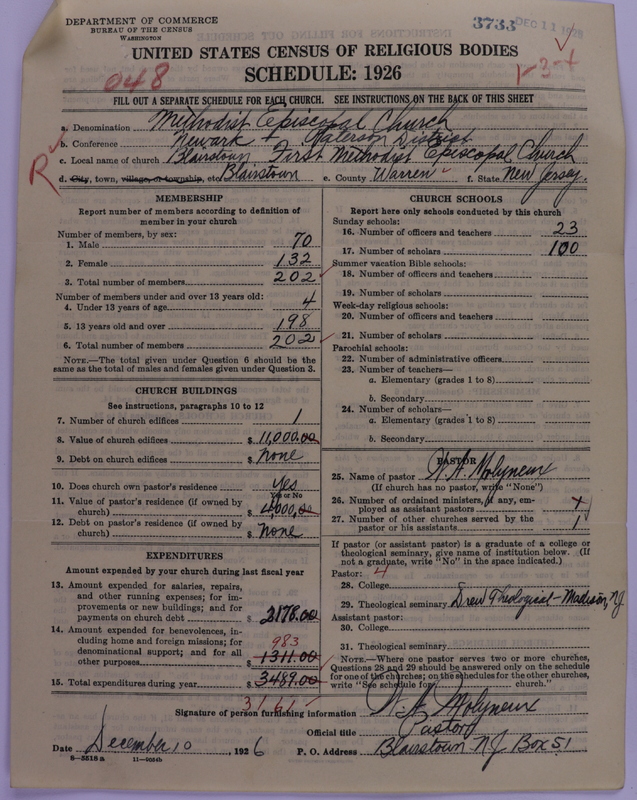 DEPARTMENT OF COMMERCE
BUREAU OF THE CENSUS
WASHINGTON
3733 DEC 11 1928
1-3-4
UNITED STATES CENSUS OF RELIGIOUS BODIES
048
SCHEDULE: 1926
FILL OUT A SEPARATE SCHEDULE FOR EACH CHURCH. SEE INSTRUCTIONS ON THE BACK OF THIS SHEET
R
a. Denomination Methodist Episcopal Church
b. Conference Newark + Paterson District
c. Local name of church Blairstown, First Methodist Episcopal Church
d. City, town, village, or township, etc. Blairstown e. County Warren f. State New Jersey.
MEMBERSHIP
Report number of members according to definition of
member in your church
Number of members, by sex:
1. Male 70
2. Female 132
3. Total number of members 202
Number of members under and over 13 years old:
4. Under 13 years of age 4
5. 13 years old and over 198
6. Total number of members 202
NOTE.—The total given under Question 6 should be
same as the total of males and females given under Question 3.
CHURCH BUILDINGS
See instructions, paragraphs 10 to 12
7. Number of church edifices 1
8. Value of church edifices $ 11,000.00
9. Debt on church edifices $ None
10. Does church own pastor's residence Yes
Yes or No
11. Value of pastor's residence (if owned by
church) $ 4,000.00
12. Debt on pastor's residence (if owned by
church) $ None
EXPENDITURES
Amount expended by your church during last fiscal year
13. Amount expended for salaries, repairs,
and other running expenses; for im-
provements or new buildings; and for
payments on church debt $ 2178.00
14. Amount expended for benevolences, in-
cluding home and foreign missions; for
denominational support; and for all
other purposes $ 1311.00
983
15. Total expenditures during year $ 3489.00
3161
CHURCH SCHOOLS
Report here only schools conducted by this church
Sunday schools:
16. Number of officers and teachers 23
17. Number of scholars 100
Summer vacation Bible schools:
18. Number of officers and teachers
19. Number of scholars
Week-day religious schools:
20. Number of officers and teachers
21. Number of scholars
Parochial schools:
22. Number of administrative officers
23. Number of teachers—
a. Elementary (grades 1 to 8)
b. Secondary
24. Number of scholars—
a. Elementary (grades 1 to 8)
b. Secondary
PASTOR
25. Name of pastor W. A. Molyneux
(If church has no pastor, write "None")
26. Number of ordained ministers, if any, em-
ployed as assistant pastors
27. Number of other churches served by the
pastor or his assistants 1
If pastor (or assistant pastor) is a graduate of a college or
theological seminary, give name of institution below. (If
not a graduate, write "No" in the space indicated.)
Pastor: 4
28. College
29. Theological seminary Drew Theological - Madison, NJ
Assistant pastor:
30. College
31. Theological seminary
NOTE.—Where one pastor serves two or more churches,
Questions 28 and 29 should be answered only on the schedule
for one of the churches; on the schedules for the other churches,
write "See schedule for church."
Signature of person furnishing information W. A. Molyneux
Official title Pastor
Date December 10, 1926 P. O. Address Blairstown NJ Box 51
8-5518 a 11-9064b